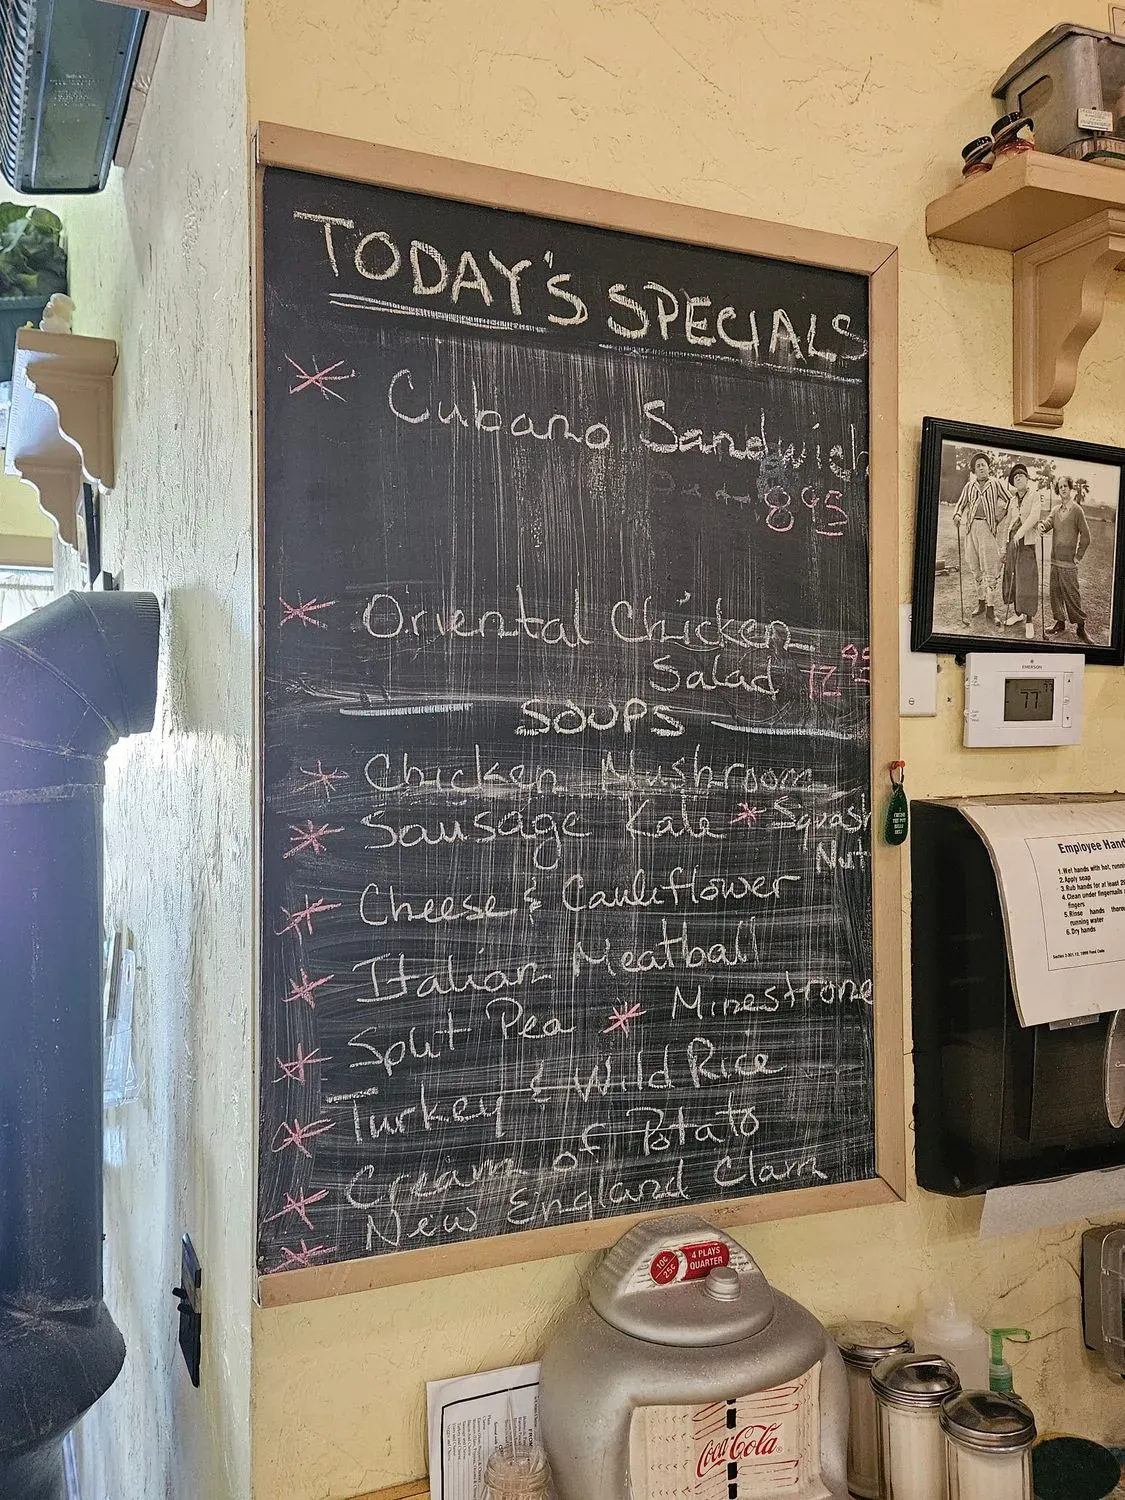 TODAY'S SPECIALS
Cubano Sandwich
8 95
Oriental Chicken
Salad 12 95
SOUPS
Chicken Mushroom
Sausage Kale * Squash
Nut
Cheese & Cauliflower
Italian Meatball
Split Pea * Minestrone
Turkey & Wild Rice
Cream of Potato
New England Clam
EMERSON
77
Employee Hand
1. Wet hands with hot, runnin
2. Apply soap
3. Rub hands for at least 20
4. Clean under fingernails
fingers
5. Rinse hands thoro
running water
6. Dry hands
10¢
25¢
4 PLAYS
QUARTER
Coca-Cola